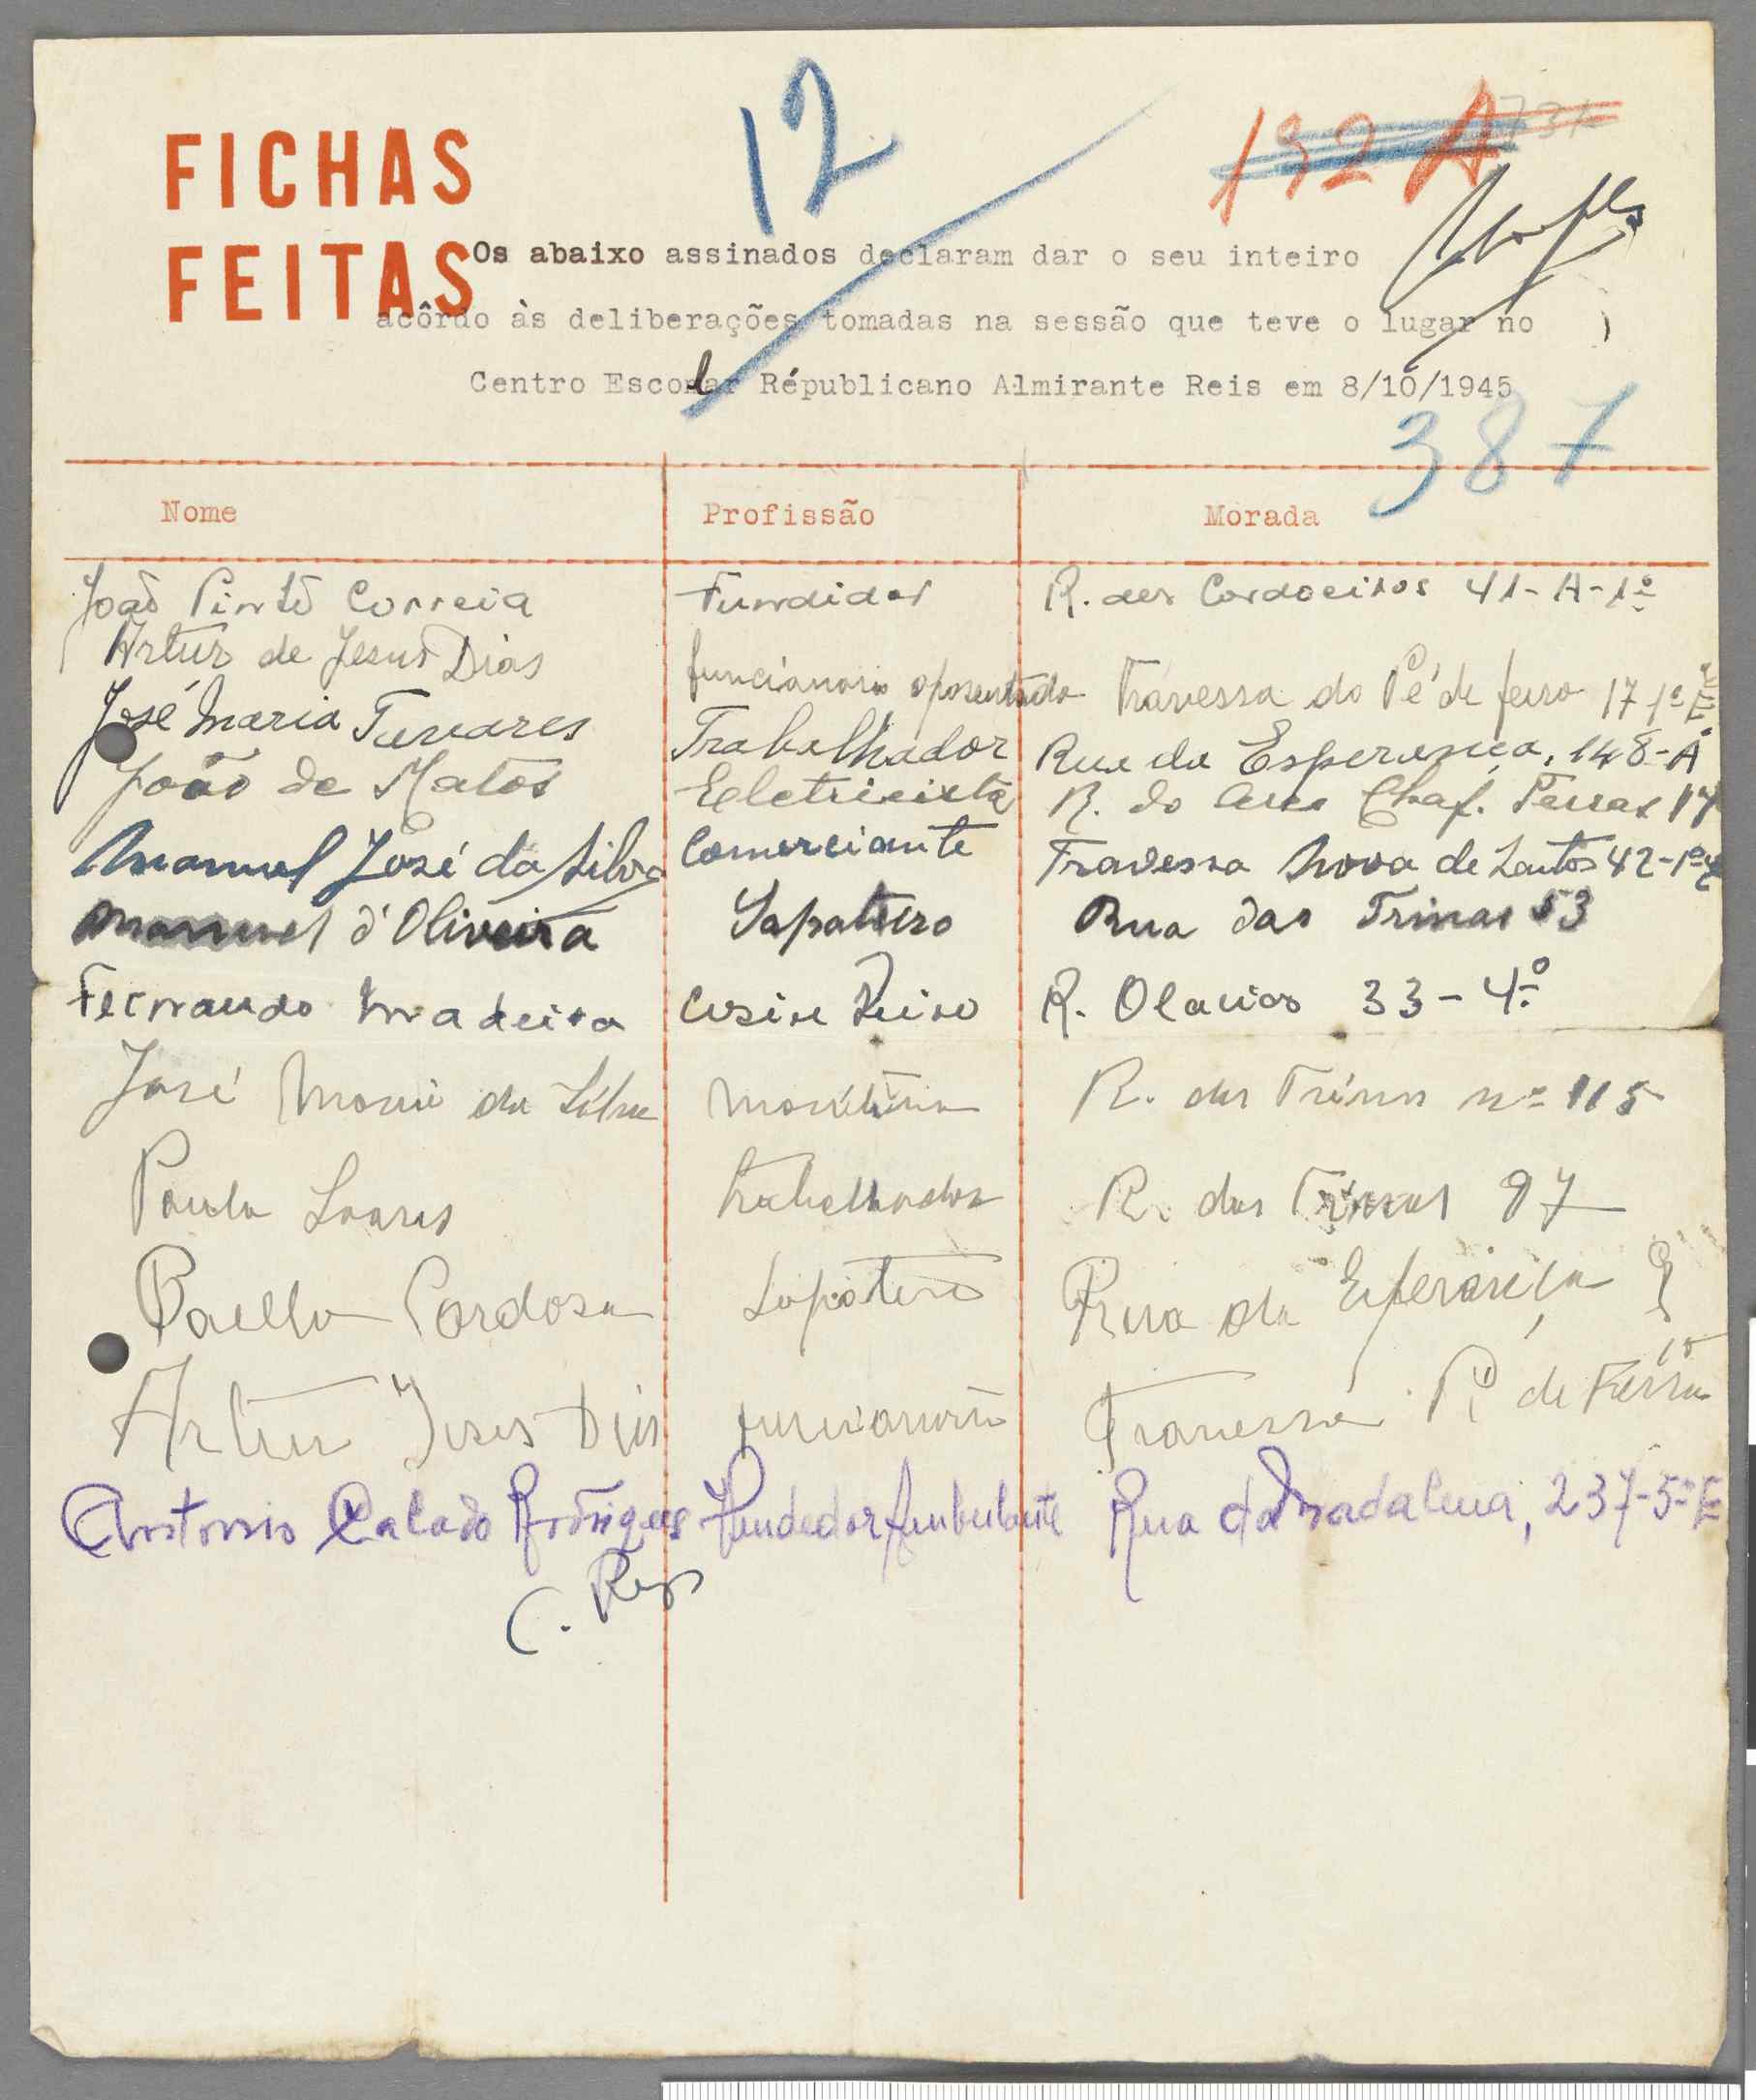 12
192 A
FICHAS
FEITAS
Os abaixo assinados declaram dar o seu inteiro
acôrdo às deliberações tomadas na sessão que teve o lugar no
Centro Escolar Républicano Almirante Reis em 8/10/1945
387
Nome Profissão Morada
João Pinto Correia Fundidor R. dos Cordoeiros 41-A-1º
Artur de Jesus Dias funcionario aposentado Travessa do Pé de ferro 17 1º E
José Maria Tavares Trabalhador Rua da Esperança, 148-A
João de Matos Eletricista R. do Chaf. Terras 17
Manuel José da Silva Comerciante Travessa Nova de Santos 42-1º
Manuel d'Oliveira Sapateiro Rua das Trinas 53
Fernando Madeira R. Olarias 33-4º
José Maria da Silva Maritimo R. das Trinas nº 115
Paulo Soares trabalhador R. das Trinas 97
Cardoso Sapateiro Rua da Esperança
Artur Jesus Dias funcionario Travessa Pé de Ferro
Antonio Calado Rodrigues Vendedor Ambulante Rua da Madalena, 237-5º E